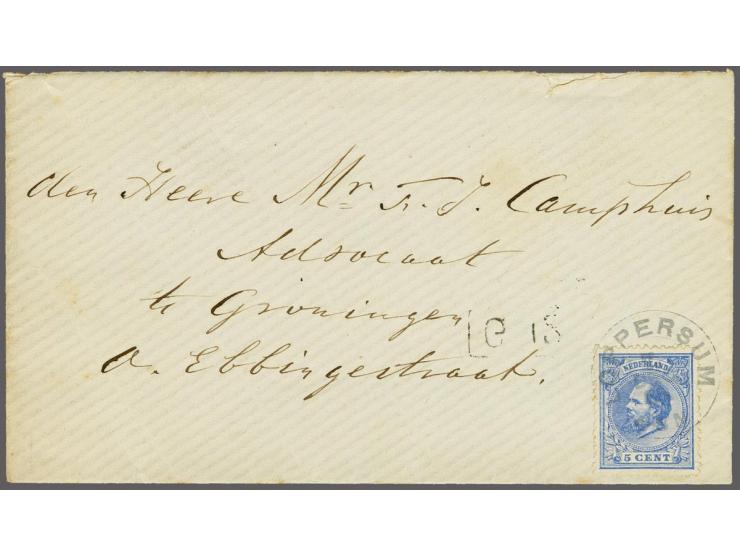 den Heere Mr. Fr. J. Camphuis
Advocaat
te Groningen
O. Ebbingestraat.
OPPERSUM
NEDERLAND
5 CENT